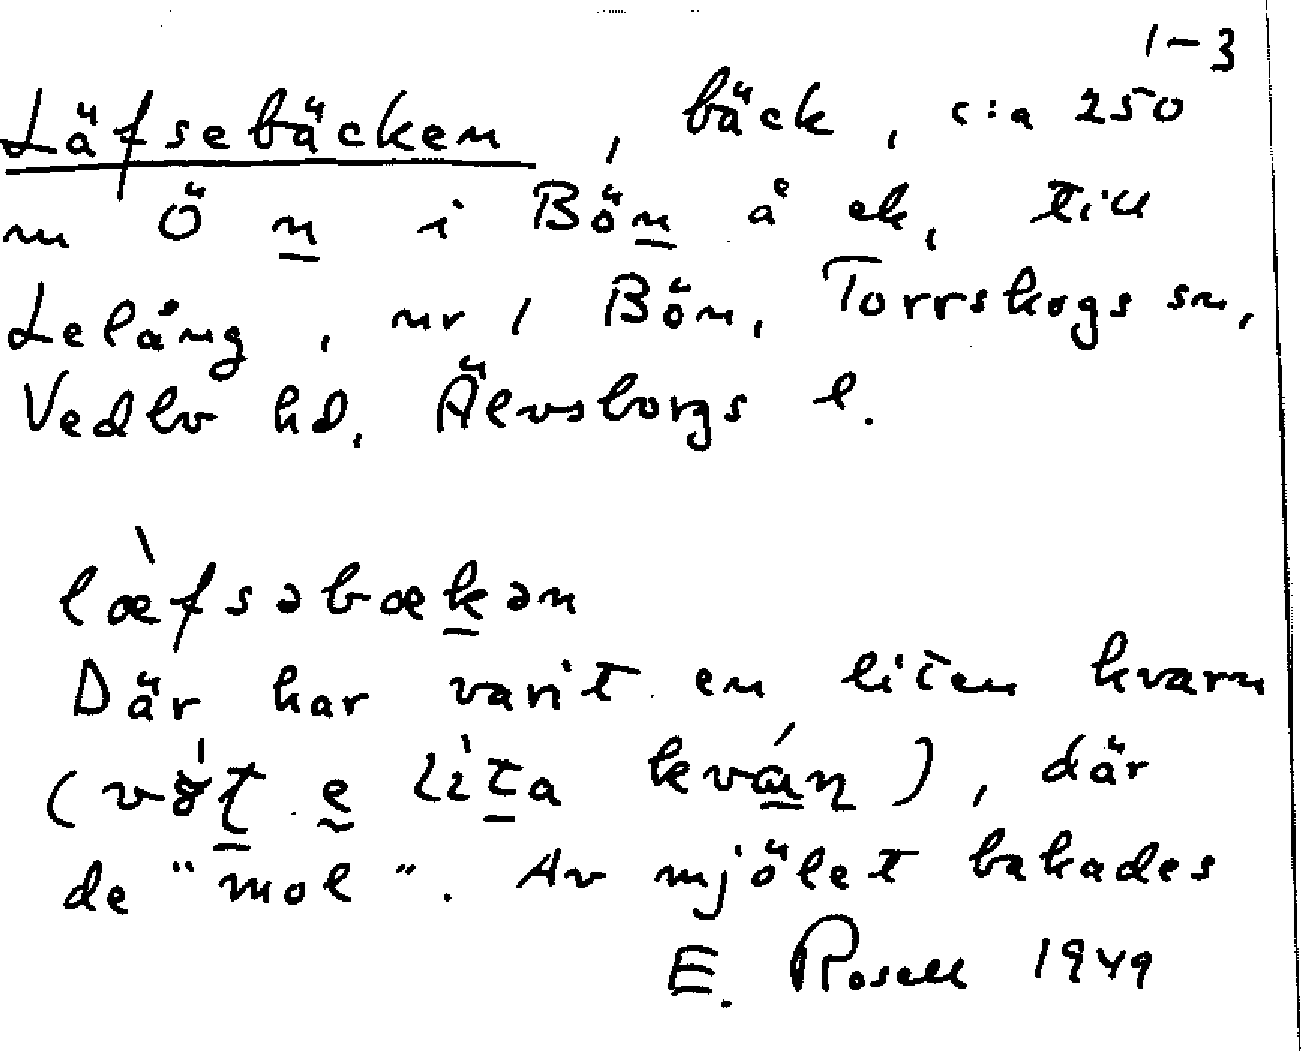 1-3
Läfsebäcken, bäck, c:a 250
m Ö n i Bön å ek, till
Lelång, nr 1 Bön, Torrskogs sn,
Vedbo hd, Älvsborgs l.
læ̀fsəbækən
Där har varit en liten kvarn
(vɤ̀t e lìta kván), där
de "mol". Av mjölet bakades
E. Rosell 1949